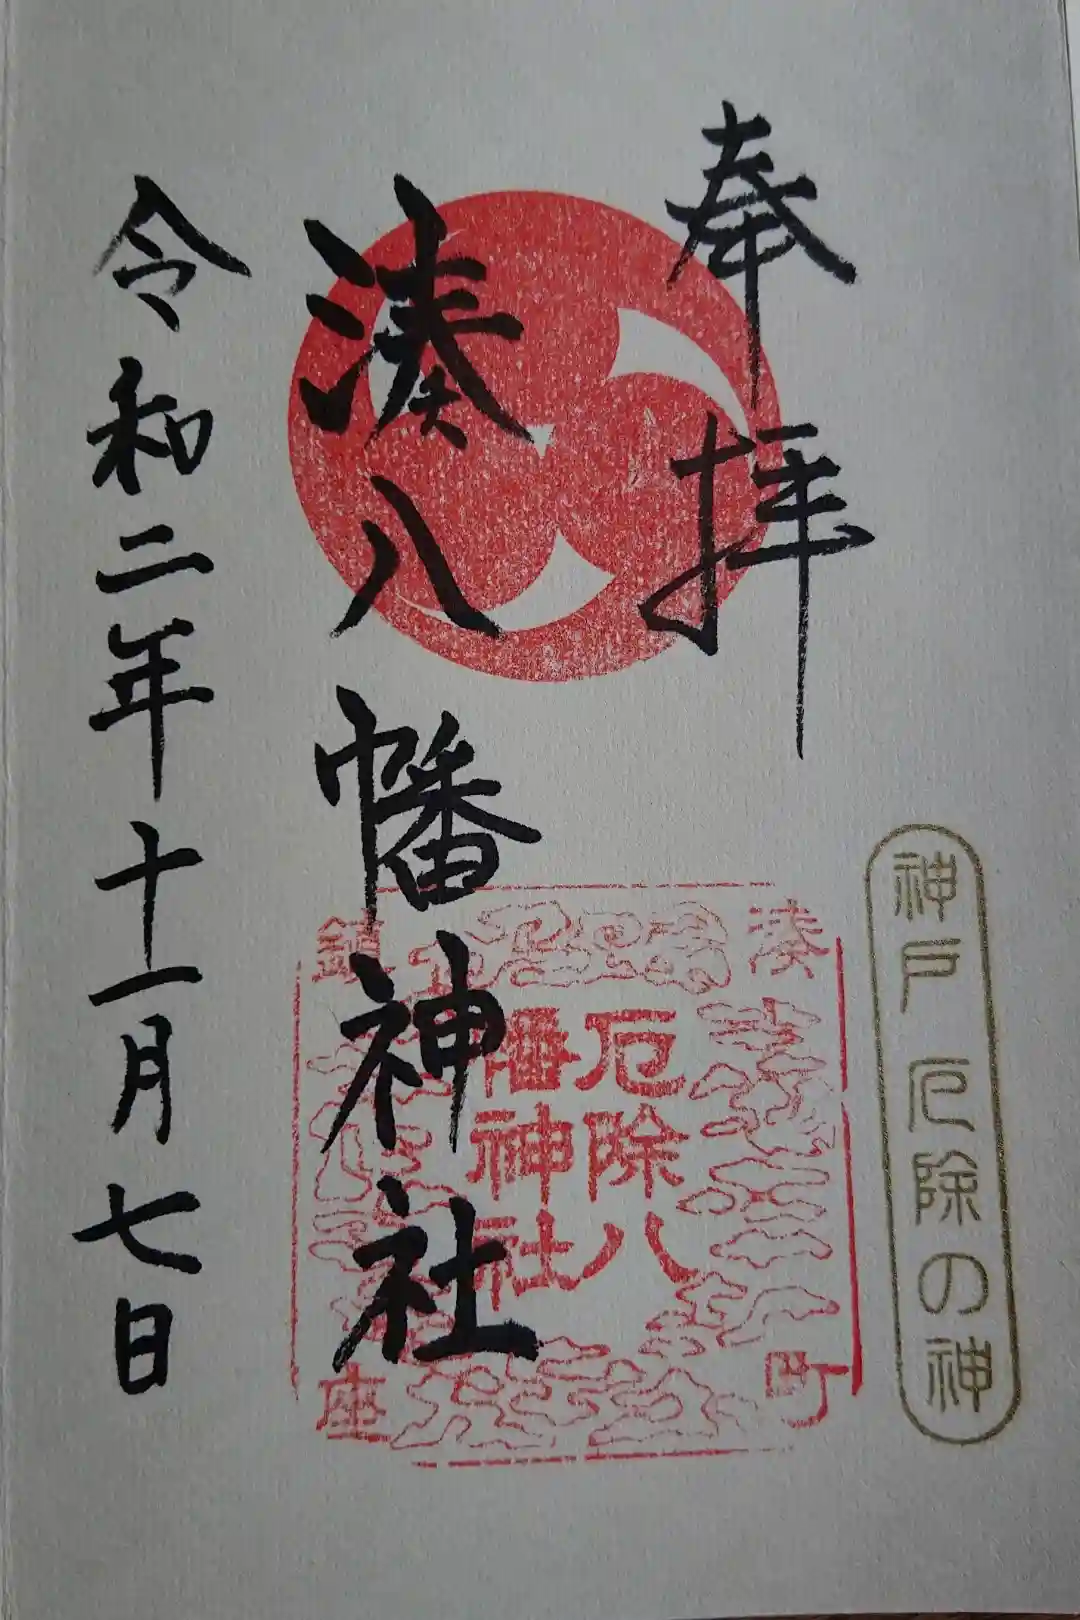 奉拝
神戸厄除の神
湊八幡神社
湊町
鎮座
厄除八
幡神社
令和二年十一月七日